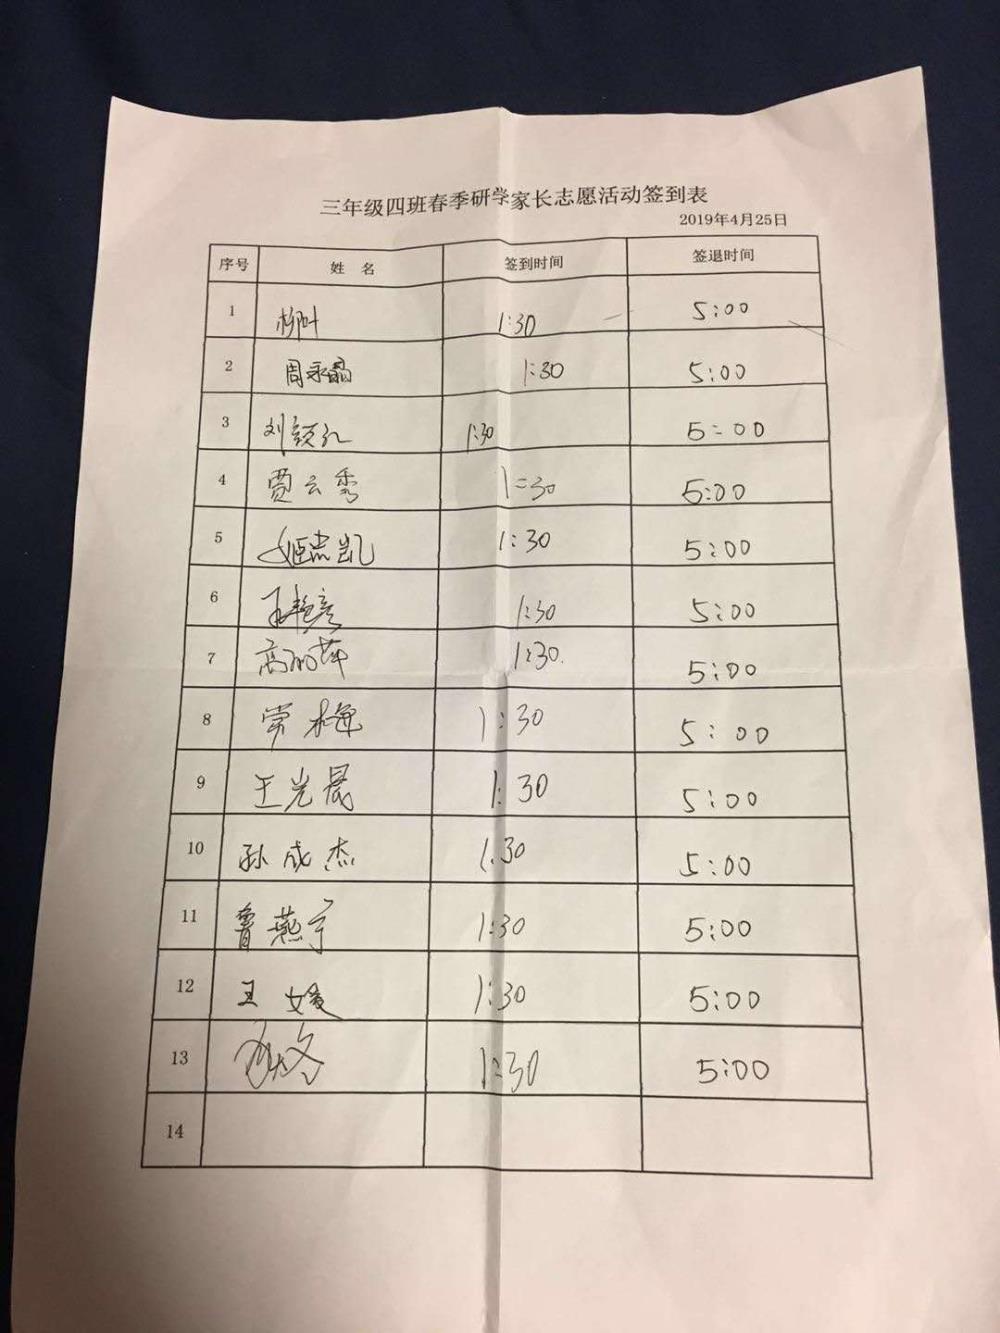 三年级四班春季研学家长志愿活动签到表
2019年4月25日
序号 姓 名 签到时间 签退时间
1 柳叶 1:30 5:00
2 周永晶 1:30 5:00
3 刘颖红 1:30 5:00
4 贾云秀 1:30 5:00
5 姬志凯 1:30 5:00
6 王艳彦 1:30 5:00
7 高丽萍 1:30. 5:00
8 常梅 1:30 5:00
9 王光晨 1:30 5:00
10 孙成杰 1:30 5:00
11 鲁燕宁 1:30 5:00
12 王媛 1:30 5:00
13 1:30 5:00
14